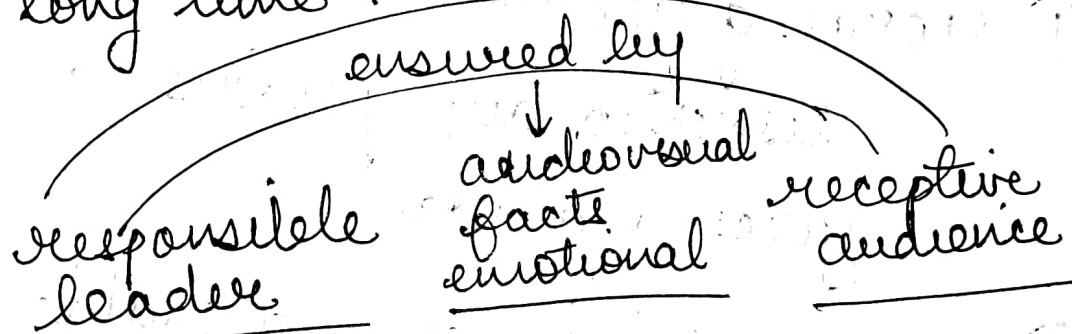 long time.
ensured by
responsible
leader
audiovisual
facts
emotional
receptive
audience